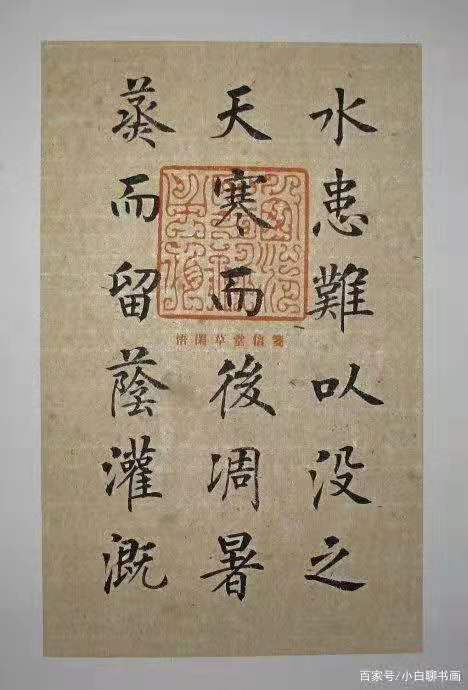 水患難以没之
天寒而後凋暑
蒸而留蔭灌溉
草堂信箋
百家号/小白聊书画